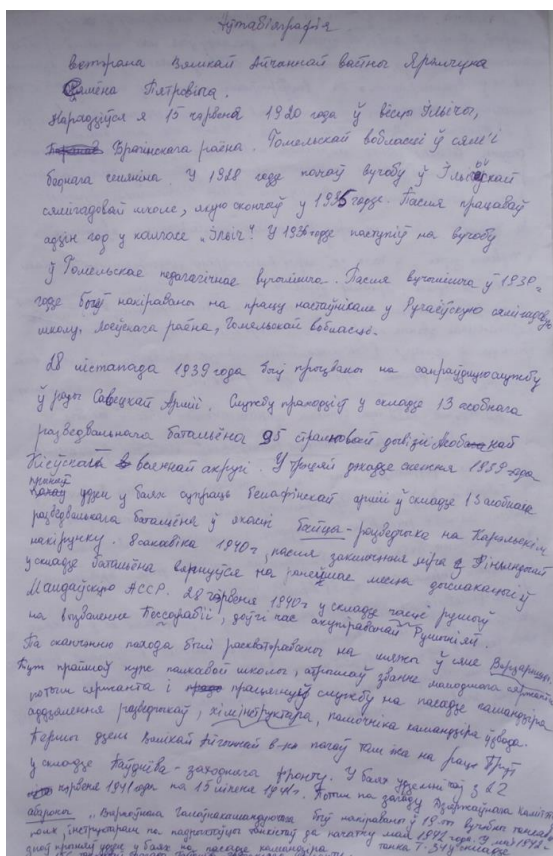 Аўтабіяграфія
ветэрана Вялікай Айчыннай вайны Ярымчука
Сямёна Пятровіча.
Нарадзіўся я 15 чэрвеня 1920 года ў вёсцы Ільічы,
Брагінскага раёна. Гомельскай вобласці ў сям'і
беднага селяніна. У 1928 годзе пачаў вучобу ў
сямігадовай школе, якую скончыў у 1935 годзе. Пасля працаваў
адзін год у калгасе „Ільіч". У 1936 годзе паступіў на вучобу
ў Гомельскае педагагічнае вучылішча. Пасля вучылішча ў 1939-
годзе быў накіраваны на працу настаўнікам у Ручаёўскую сямігадовую
школу, Лоеўскага раёна, Гомельскай вобласці.
28 лістапада 1939 года быў прызваны на сапраўдную службу
ў рады Савецкай Арміі. Службу праходзіў у складзе 13 асобнага
разведвальнага батальёна 95 стралковай дывізіі
Кіеўскай ваеннай акругі. У трэцяй дэкадзе снежня 1939 года
прыняў удзел у баях супраць белафінскай арміі ў складзе 13 асобнага
разведвальнага батальёна ў якасці байца-разведчыка на Карэльскім
накірунку. 8 сакавіка 1940 г. пасля заключэння міра з Фінляндыяй
у складзе батальёна вярнуўся на ранейшае месца дыслакацыі ў
Малдаўскую АССР. 28 чэрвеня 1940 г у складзе часці рушыў
на вызваленне Бесарабіі, доўгі час акупіраванай Румыніяй.
Па сканчэнню пахода былі раскватараваны на
Тут прайшоў курс палкавой школы, атрымаў званне малодшага сяржанта
потым сяржанта і працягнуў службу на пасадзе камандзіра
аддзялення разведчыкаў, хімінструктара, памочніка камандзіра ўзвода.
Першы дзень Вялікай Айчыннай в-ны пачаў там жа на рацэ Прут
у складзе Паўднёва-заходняга фронту. У баях удзельнічаў з 22
чэрвеня 1941 года на 15 ліпеня 1941 г. Потым па загаду Дзяржаўнага Камітэта
абароны „Вярхоўнага Галоўнакамандуючага быў накіраваны ў 19-ты вучэбны танкавы
полк, інструктарам па падрыхтоўцы танкістаў да пачатку мая 1942 года. 9 мая 1942 г.
зноў прыняў удзел у баях на пасадзе камандзіра танка Т-34